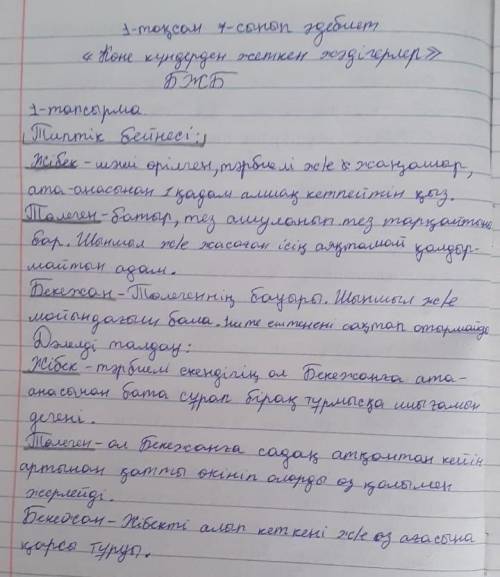 1-тоқсан 7-сынып әдебиет
«Көне күндерден жеткен жәдігерлер»
БЖБ
1-тапсырма
Типтік бейнесі:
Жібек - шашы өрілген, тәрбиелі ж/е жаңашар,
ата-анасынан 1 қадам алшақ кетпейтін қыз.
Төлеген - батыр, тез ашуланып тез тарқайтыны
бар. Шыншыл ж/е жасаған ісін аяқтамай қалдыр-
майтын адам.
Бекежан - Төлегеннің бауыры. Шыншыл ж/е
мойындағыш бала. Іште ештенені сақтап отырмайды
Дәлелді талдау:
Жібек - тәрбиелі екендігің ол Бекежанға ата-
анасынан бата сұрап бірақ тұрмысқа шығамын
дегені.
Төлеген - ол Бекежанға садақ атқаннан кейін
артынан қатты өкініп оларды өз қолымен
жерлейді.
Бекежан - Жібекті алып кеткені ж/е өз ағасына
қарсы тұруы.